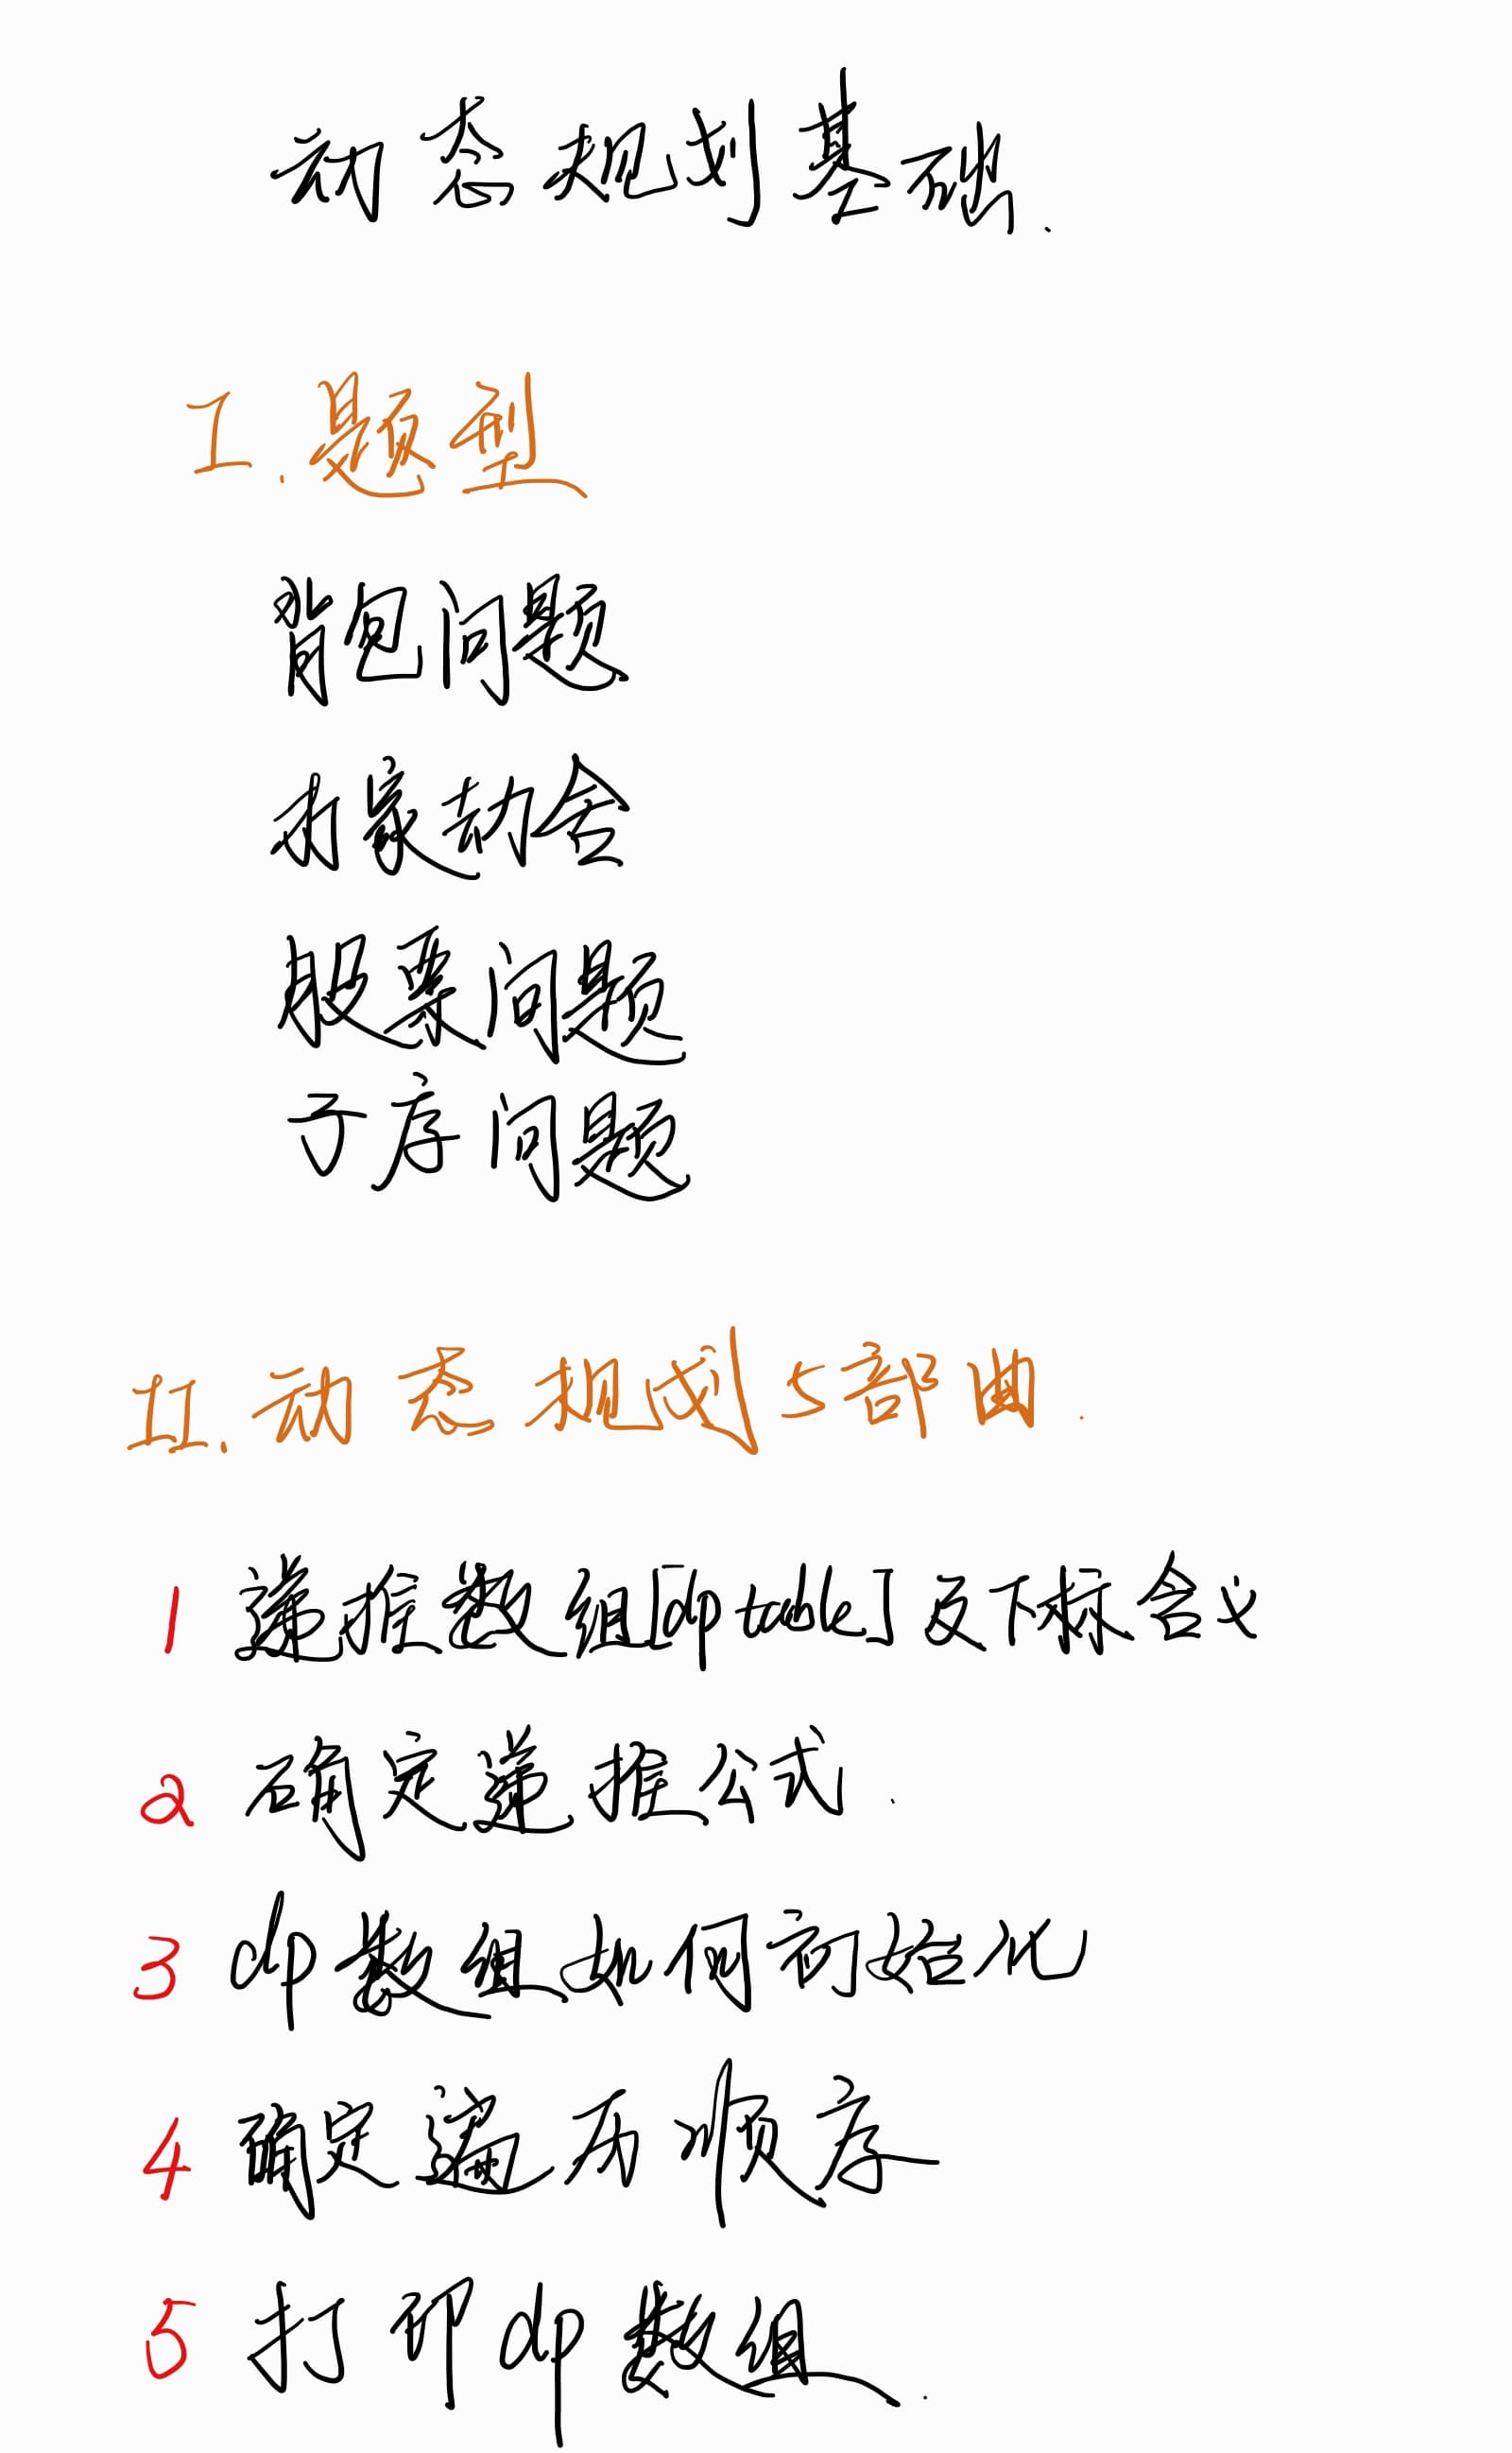 动态规划基础.
I.题型
背包问题
打家劫舍
股票问题
子序问题
II.动态规划5部曲.
1 递推数组[dp table]及下标含义
2 确定递推公式.
3 dp数组如何初始化
4 确定遍历顺序
5 打印dp数组.